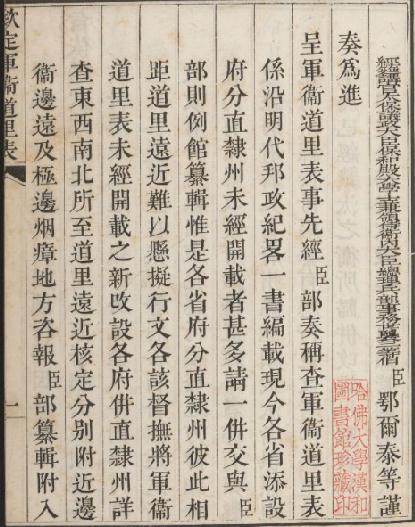 經筵講官太保議政大臣保和殿大學士兼領侍衛內大臣總理兵部事務三等伯臣鄂爾泰等謹
奏為進
呈軍衞道里表事先經臣部奏稱查軍衞道里表
係沿明代邦政紀畧一書編載現今各省添設
府分直隸州未經開載者甚多請一併交與臣
部則例館纂輯惟是各省府分直隸州彼此相
距道里遠近難以懸擬行文各該督撫將軍衞
道里表未經開載之新改設各府併直隸州詳
查東西南北所至道里遠近核定分別附近邊
衞邊遠及極邊烟瘴地方咨報臣部纂輯附入
欽定軍衞道里表
一
哈佛大學漢和
圖書館珍藏印